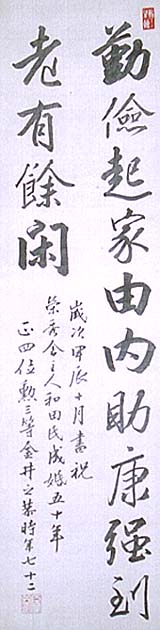 勤儉起家由内助康强到
老有餘閑
歳次甲辰十月書祝
主人和田氏成婚五十年
正四位勲三等金井之恭時年七十二